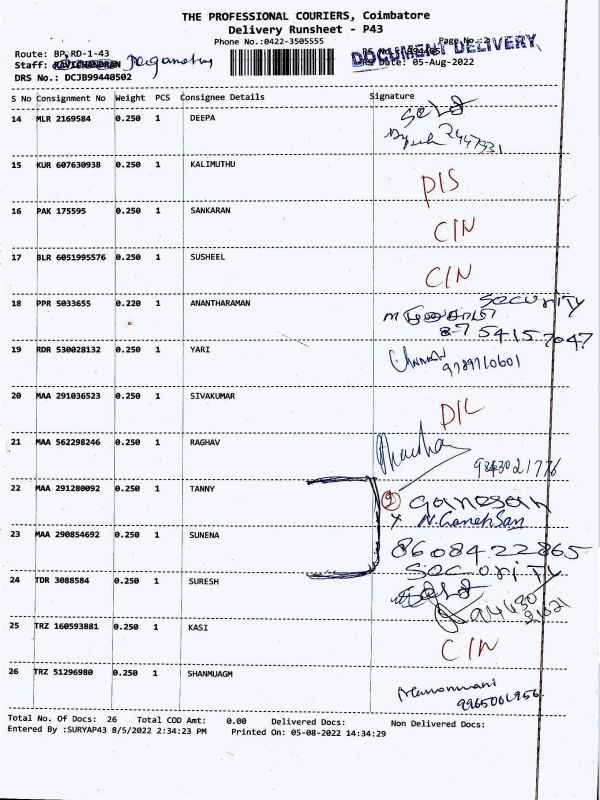 THE PROFESSIONAL COURIERS, Coimbatore
Delivery Runsheet - P43
Phone No.:0422-3505555
Page No.:2
DOCUMENT DELIVERY
Route: BP,RD-1-43
Staff: RAVICHANDRAN
DRS Date: 05-Aug-2022
DRS No.: DCJB99440502
S No Consignment No Weight PCS Consignee Details Signature
14 MLR 2169584 0.250 1 DEEPA
15 KUR 607630938 0.250 1 KALIMUTHU PIS
16 PAK 175595 0.250 1 SANKARAN C/N
17 BLR 6051995576 0.250 1 SUSHEEL C/N
18 PPR 5033655 0.220 1 ANANTHARAMAN Security
87 54157047
19 RDR 530028132 0.250 1 YARI
9789710601
20 MAA 291036523 0.250 1 SIVAKUMAR D/L
21 MAA 562298246 0.250 1 RAGHAV
9843021776
22 MAA 291280092 0.250 1 TANNY 2 Ganesan
N.GanehSan
23 MAA 290854692 0.250 1 SUNENA 8608422865
Security
24 TDR 3088584 0.250 1 SURESH
25 TRZ 160593881 0.250 1 KASI C/N
26 TRZ 51296980 0.250 1 SHANMUAGM Manonmani
Total No. Of Docs: 26 Total COD Amt: 0.00 Delivered Docs: Non Delivered Docs:
Entered By :SURYAP43 8/5/2022 2:34:23 PM Printed On: 05-08-2022 14:34:29